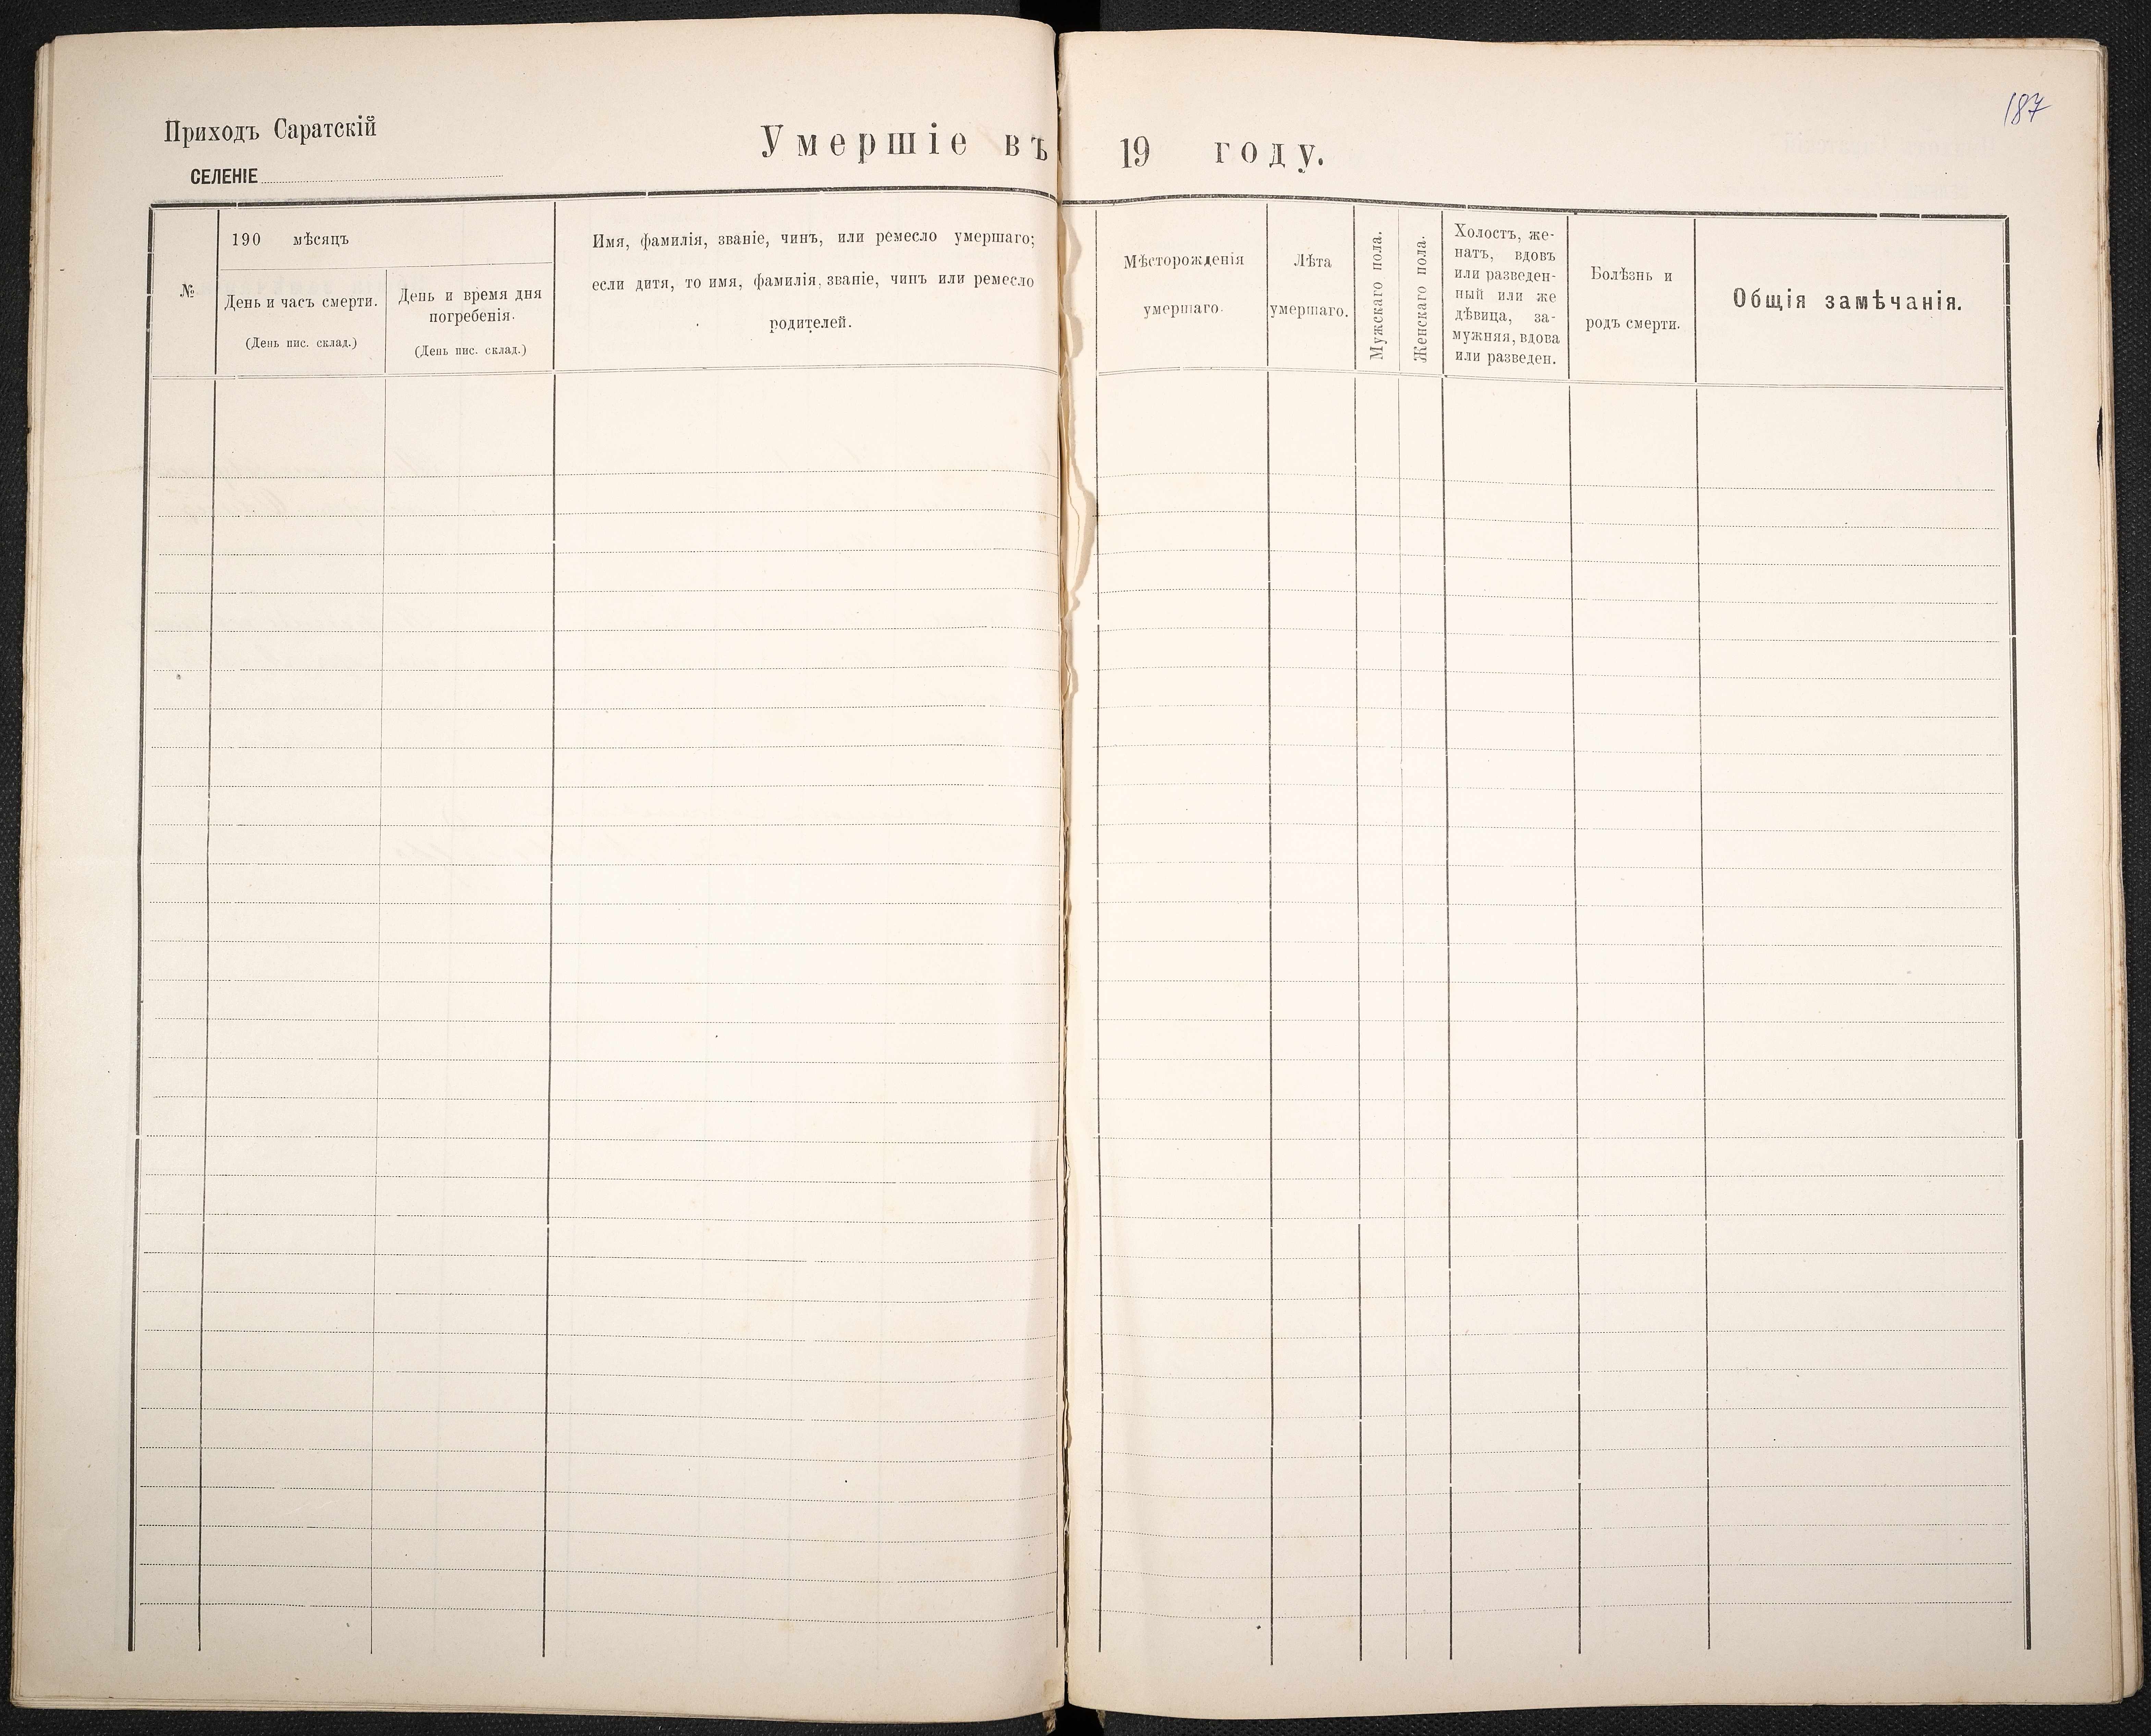 187
Приходъ Саратскій
СЕЛЕНІЕ
Умершіе въ 19 году.
№
190 мѣсяцъ
День и часъ смерти.
(День пис. склад.)
День и время дня
погребенія.
(День пис. склад.)
Имя, фамилія, званіе, чинъ, или ремесло умершаго;
если дитя, то имя, фамилія, званіе, чинъ или ремесло
родителей.
Мѣсторожденія
умершаго.
Лѣта
умершаго.
Мужскаго пола.
Женскаго пола.
Холостъ, же-
натъ, вдовъ
или разведен-
ный или же
дѣвица, за-
мужняя, вдова
или разведен.
Болѣзнь и
родъ смерти.
Общія замѣчанія.